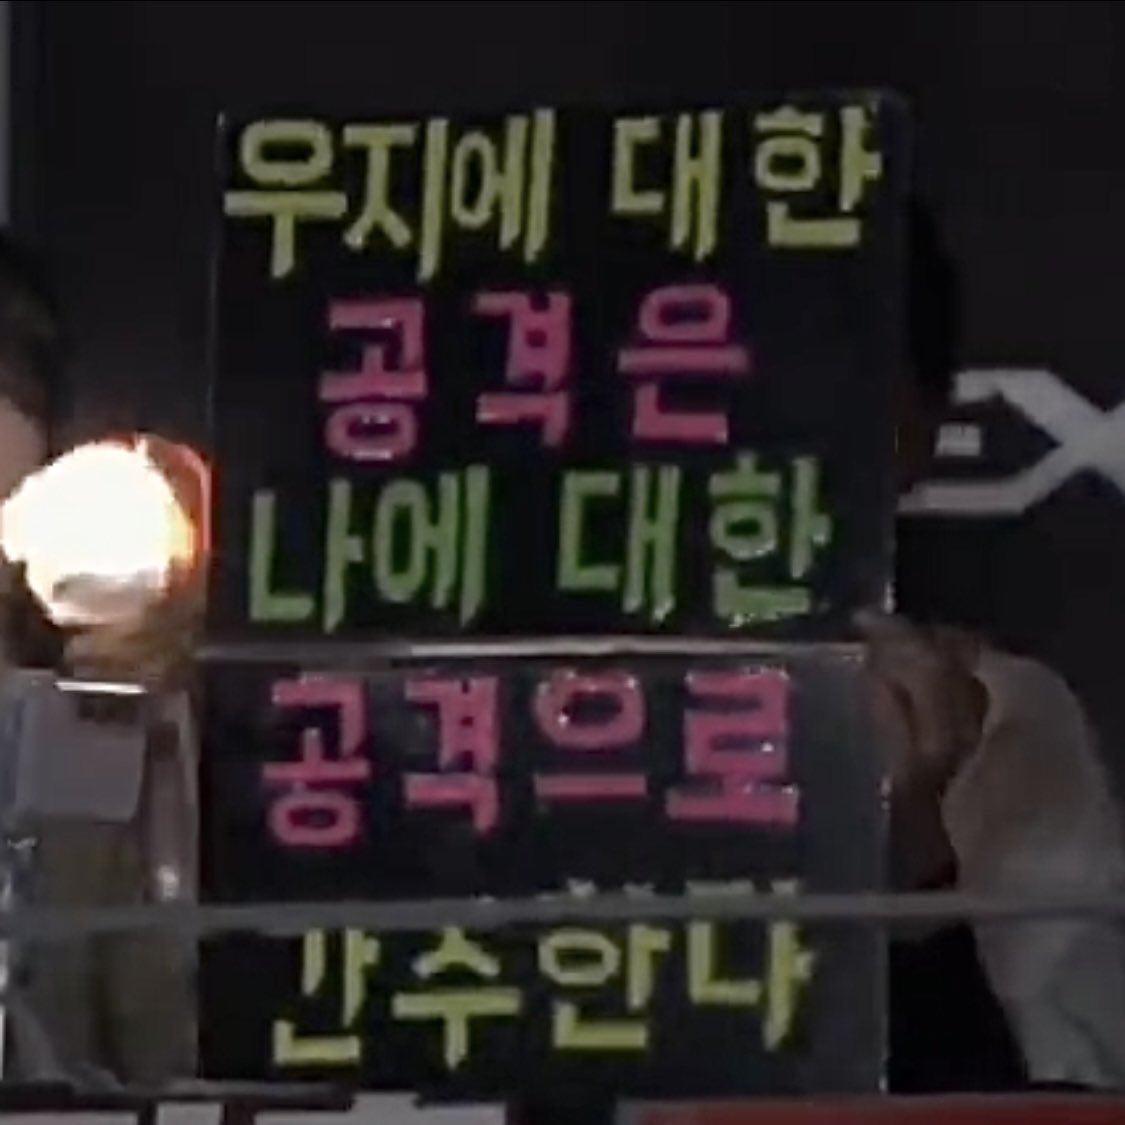 우지에 대한
공격은
나에 대한
공격으로
간수안나